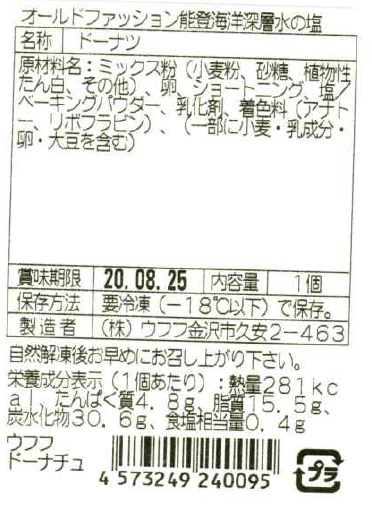 オールドファッション能登海洋深層水の塩
名称 ドーナツ
原材料名：ミックス粉（小麦粉、砂糖、植物性
たん白、その他）、卵、ショートニング、塩／
ベーキングパウダー、乳化剤、着色料（アナト
ー、リボフラビン）、（一部に小麦・乳成分・
卵・大豆を含む）
賞味期限 20.08.25 内容量 1個
保存方法 要冷凍（－18℃以下）で保存。
製造者 （株）ウフフ金沢市久安2－463
自然解凍後お早めにお召し上がり下さい。
栄養成分表示（1個あたり）：熱量281kc
al、たんぱく質4.8g、脂質15.5g、
炭水化物30.6g、食塩相当量0.4g
ウフフ
ドーナチュ
4 573249 240095
プラ